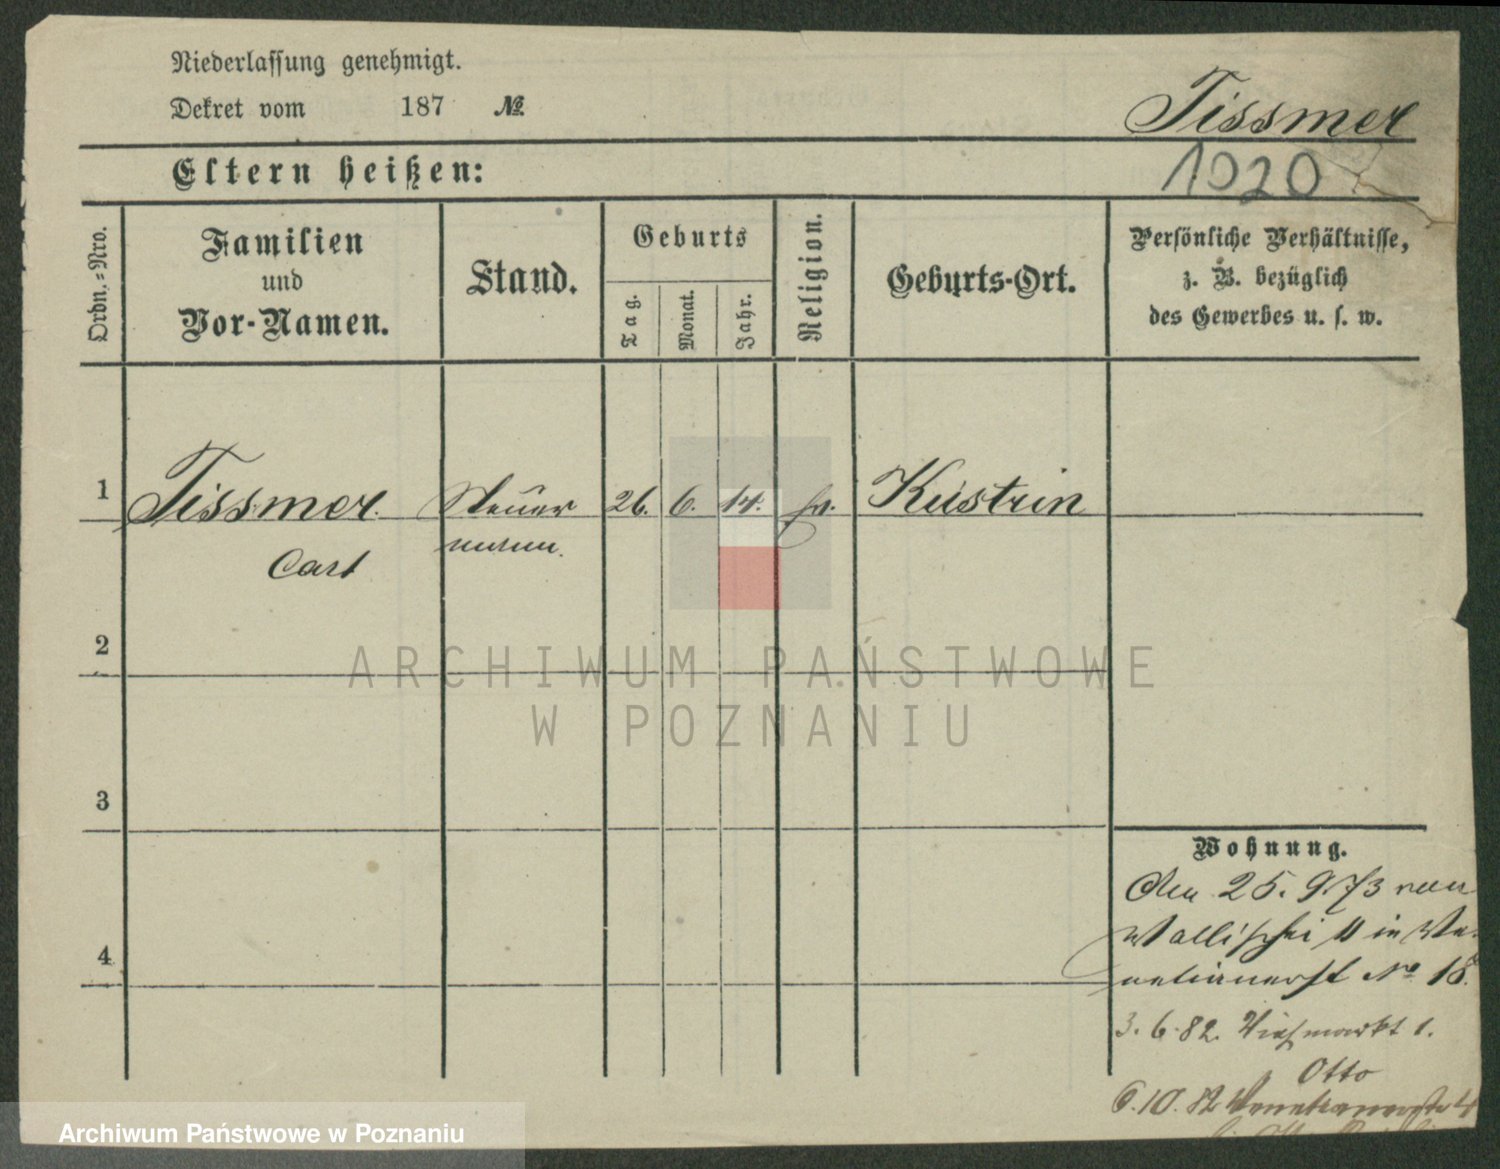 Niederlassung genehmigt.
Dekret vom 187 №
Tissmer
1020
Eltern heißen:
Ordn.-Nro.
Familien und Vor-Namen.
Stand.
Geburts
Tag.
Monat.
Jahr.
Religion.
Geburts-Ort.
Persönliche Verhältnisse,
z. B. bezüglich
des Gewerbes u. s. w.
1 Tissmer Steuer 26. 6. 14. ev. Küstrin
Carl mann.
2
ARCHIWUM PAŃSTWOWE
W POZNANIU
3
Wohnung.
Den 25. 9. 73 von
Wallischei 11 in Ve-
4
netianerst № 18.
3. 6. 82. Viehmarkt 1.
Otto
6. 10. 82 Venetianerstr 4
Archiwum Państwowe w Poznaniu